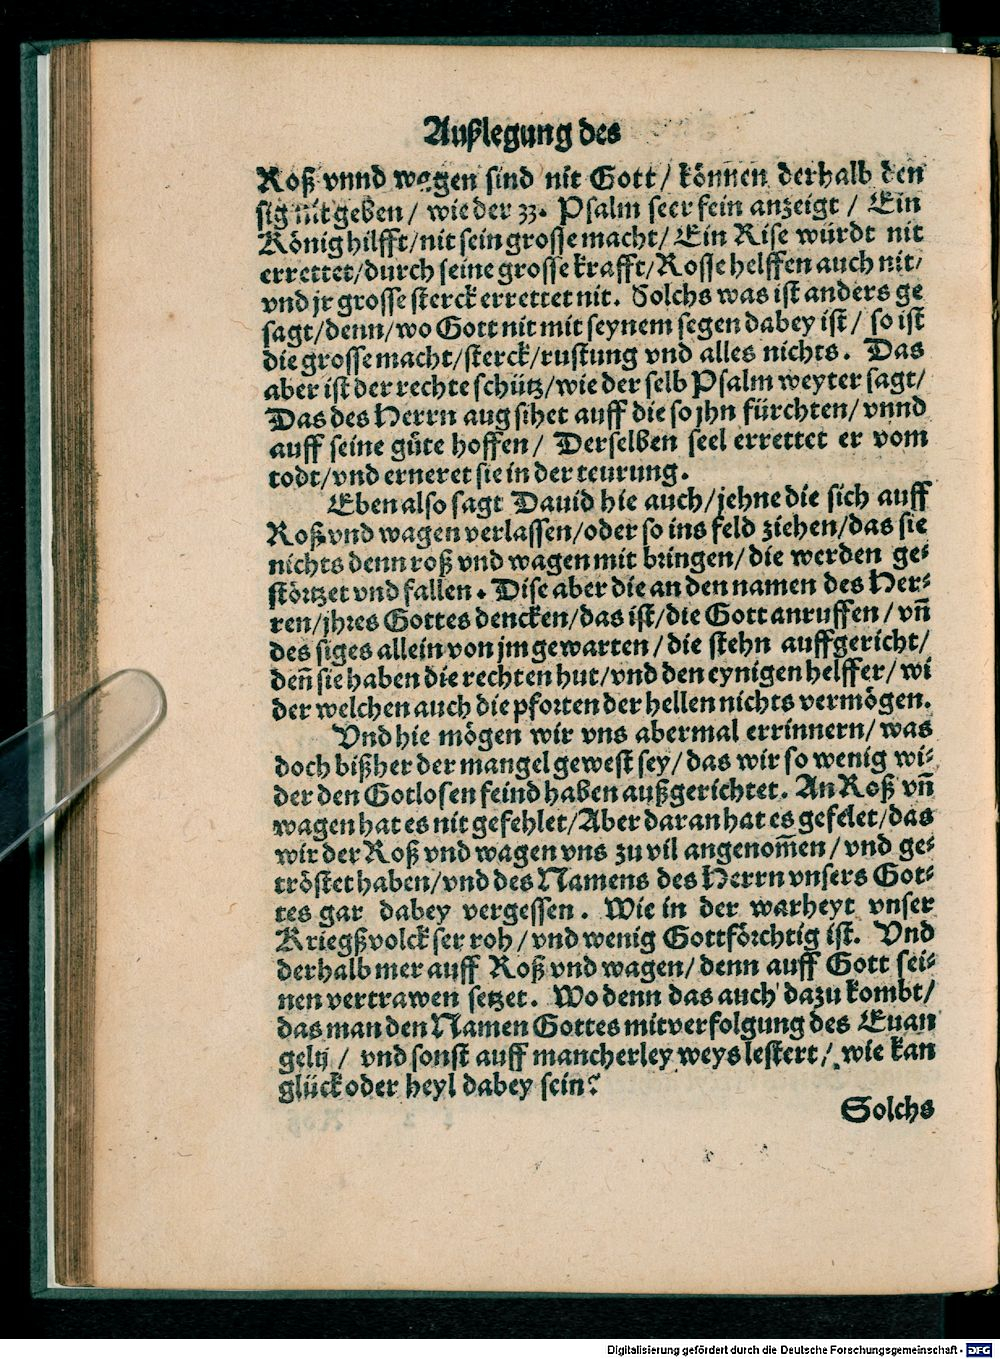 Außlegung des
Roß vnnd wagen sind nit Gott/ können derhalb den
sig nit geben/ wie der 33. Psalm seer fein anzeigt/ Ein
König hilfft/nit sein grosse macht/ Ein Rise würdt nit
errettet/durch seine grosse krafft/Rosse helffen auch nit/
vnd jr grosse sterck errettet nit. Solchs was ist anders ge
sagt/denn/wo Gott nit mit seynem segen dabey ist/ so ist
die grosse macht/sterck/rustung vnd alles nichts. Das
aber ist der rechte schütz/wie der selb Psalm weyter sagt/
Das des Herrn aug sihet auff die so jhn fürchten/ vnnd
auff seine güte hoffen/ Derselben seel errettet er vom
todt/vnd erneret sie in der teurung.
Eben also sagt Dauid hie auch/jehne die sich auff
Roß vnd wagen verlassen/oder so ins feld ziehen/das sie
nichts denn roß vnd wagen mit bringen/ die werden ge-
störtzet vnd fallen. Dise aber die an den namen des Her-
ren/jhres Gottes dencken/das ist/die Gott anruffen/ vñ
des siges allein von jm gewarten/ die stehn auffgericht/
deñ sie haben die rechten hut/vnd den eynigen helffer/ wi
der welchen auch die pforten der hellen nichts vermögen.
Vnd hie mögen wir vns abermal errinnern/ was
doch bißher der mangel gewest sey/ das wir so wenig wi-
der den Gotlosen feind haben außgerichtet. An Roß vñ
wagen hat es nit gefehlet/Aber daran hat es gefelet/das
wir der Roß vnd wagen vns zu vil angenom̄en/ vnd ge-
tröstet haben/vnd des Namens des Herrn vnsers Got-
tes gar dabey vergessen. Wie in der warheyt vnser
Kriegßvolck ser roh/ vnd wenig Gottförchtig ist. Vnd
derhalb mer auff Roß vnd wagen/ denn auff Gott sei-
nen vertrawen setzet. Wo denn das auch dazu kombt/
das man den Namen Gottes mit verfolgung des Euan
gelij/ vnd sonst auff mancherley weys lestert/ wie kan
glück oder heyl dabey sein?
Solchs
Digitalisierung gefördert durch die Deutsche Forschungsgemeinschaft - DFG